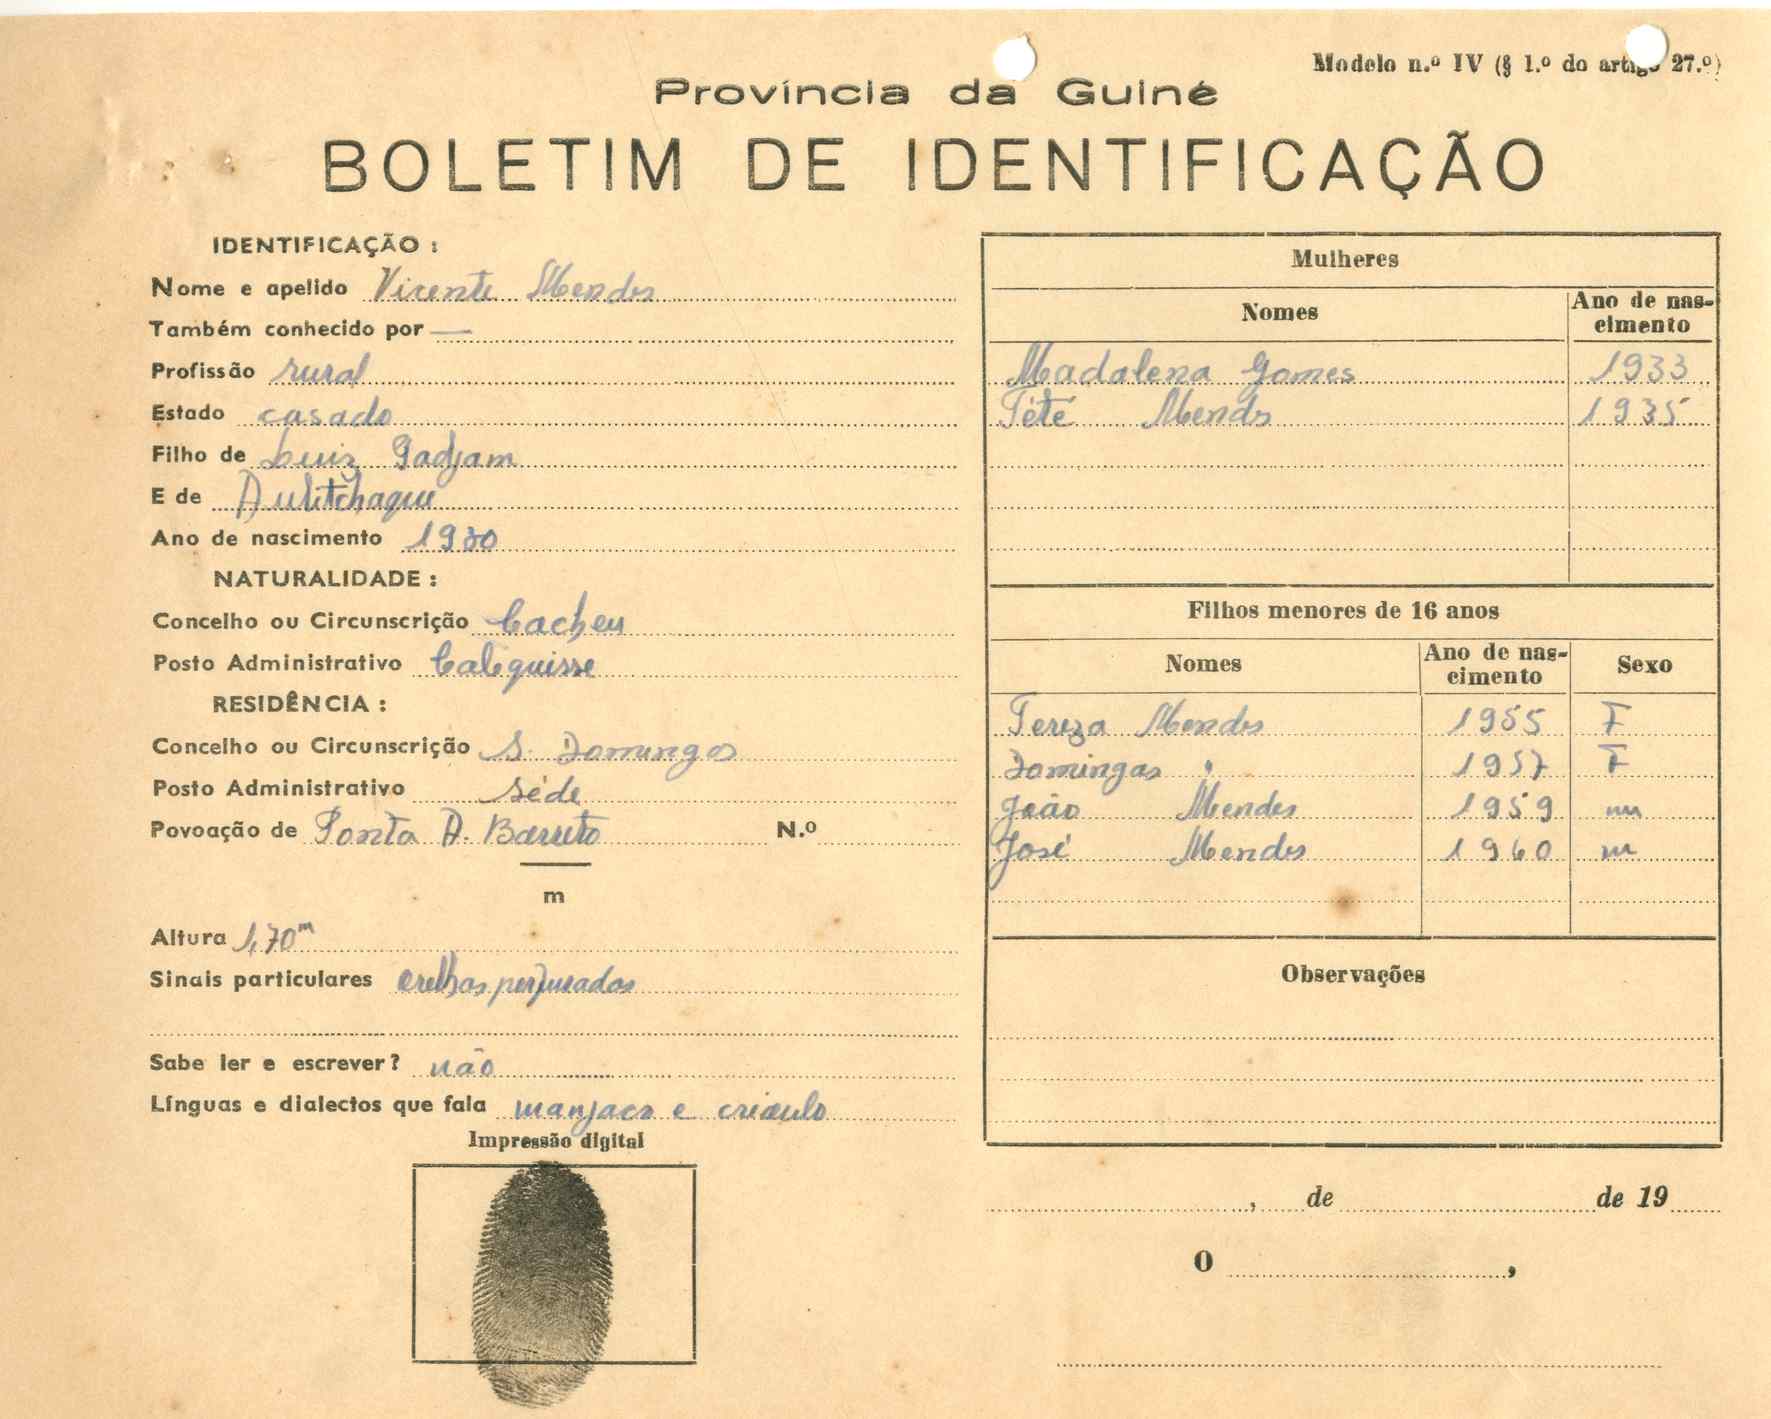 Modelo n.º IV (§ 1.º do artigo 27.º)
Província da Guiné
BOLETIM DE IDENTIFICAÇÃO
IDENTIFICAÇÃO :
Nome e apelido Vicente Mendes
Também conhecido por —
Profissão rural
Estado casado
Filho de Luiz Gadjam
E de
Ano de nascimento 1930
NATURALIDADE :
Concelho ou Circunscrição Cacheu
Posto Administrativo Calequisse
RESIDÊNCIA :
Concelho ou Circunscrição S. Domingos
Posto Administrativo séde
Povoação de Ponta A. Barreto N.º
m
Altura 1,70m
Sinais particulares orelhas perfuradas
Sabe ler e escrever? não
Línguas e dialectos que fala manjaco e crioulo
Impressão digital
Mulheres
Nomes Ano de nascimento
Madalena Gomes 1933
Tété Mends 1935
Filhos menores de 16 anos
Nomes Ano de nascimento Sexo
Tereza Mendes 1955 F
Domingas " 1957 F
João Mendes 1959 m
José Mendes 1960 m
Observações
, de de 19
O ,